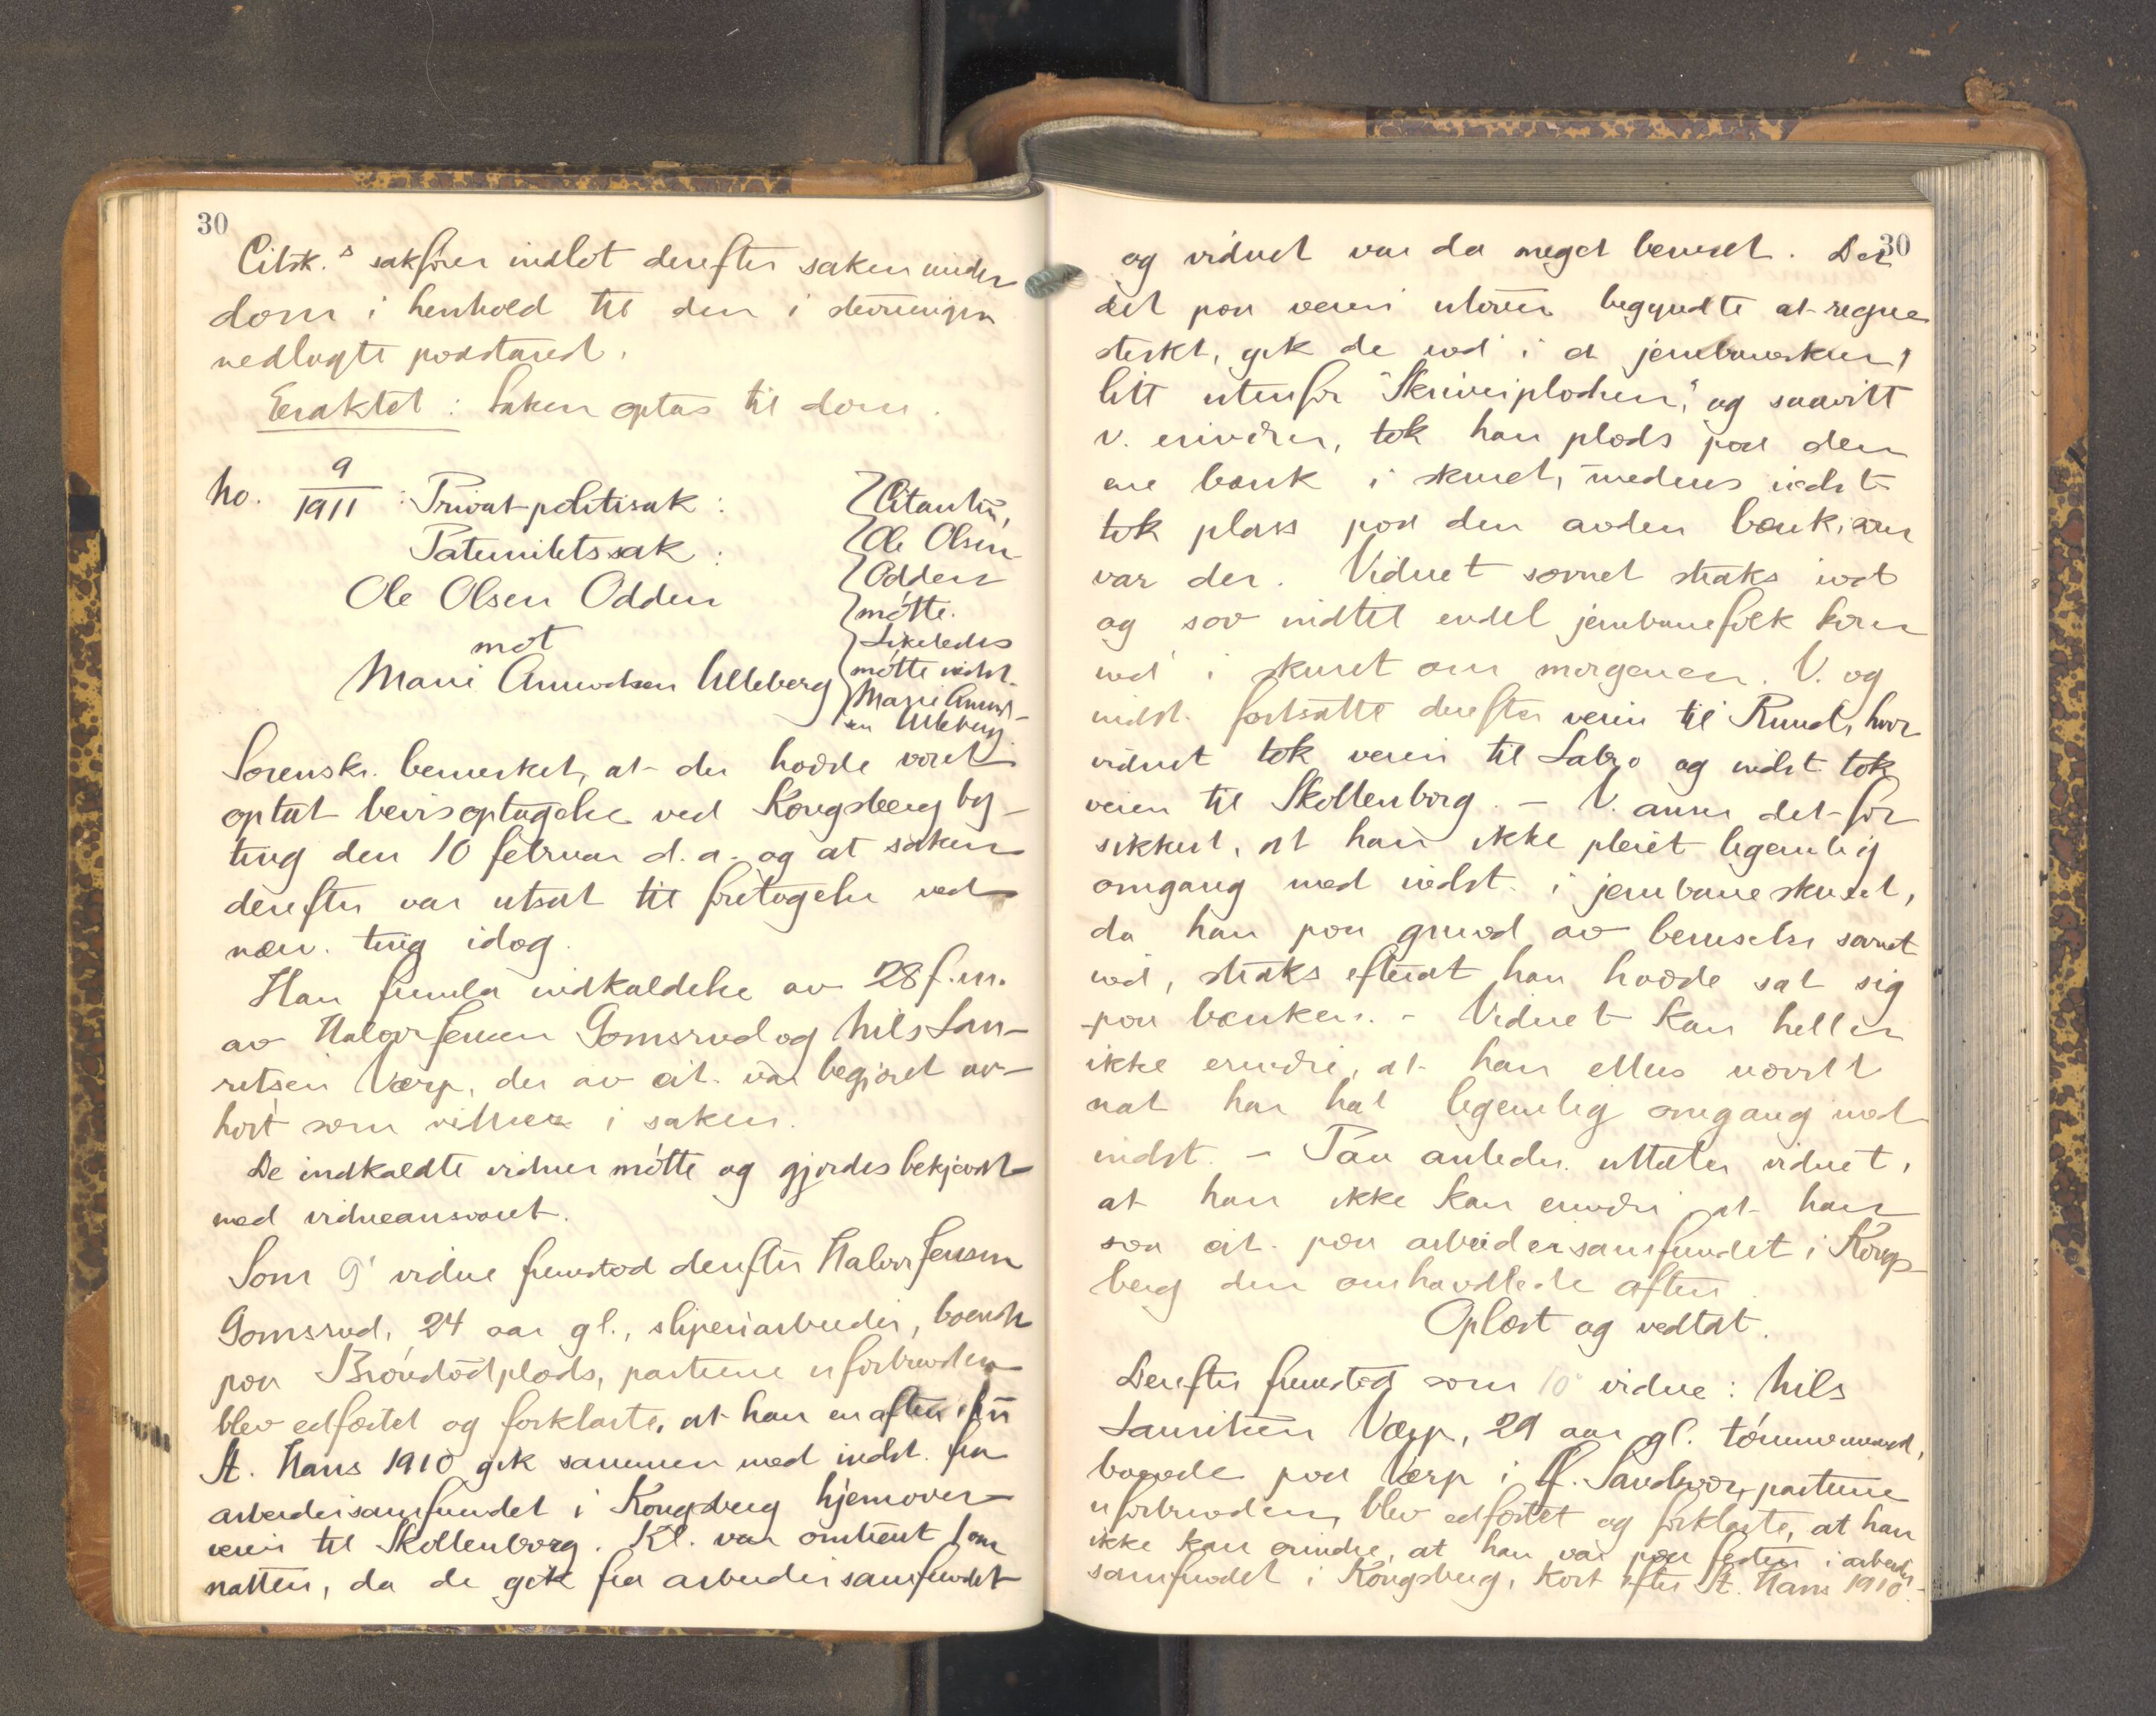 30
Citsk.s sakfører indlot derefter saken under
dom i henhold til den i stevningen
nedlagte paastand.
Eraktet: Saken optas til dom.
No. 9/1911: Privat politisak:
Paternitetssak:
Ole Olsen Odden
mot
Marie Amundsen Ulleberg
Citanten,
Ole Olsen
Odden
møtte.
Likeledes
møtte indst.
Marie Amund-
sen Ulleberg.
Sorenskr. bemerket, at der hadde været
optat bevisoptagelse ved Kongsberg by-
ting den 10 februar d.a. og at saken
derefter var utsat til foretagelse ved
næv. ting idag.
Han fremla indkaldelse av 28 f.m.
av Halvor Jensen Gomsrud og Nils Lau-
ritsen Værp, der av cit. var begjæret av-
hørt som vitner i saken.
De indkaldte vidner møtte og gjordes bekjendt
med vidneansvaret.
Som 9' vidne fremstod derefter Halvor Jensen
Gomsrud, 24 aar gl., sliperiarbeider, boende
paa Brøndødplads, partene uforbunden
blev edfæstet og forklarte, at han en aften før
St. Hans 1910 gik sammen med indst. fra
arbeidersamfundet i Kongsberg hjemover
veien til Skollenborg. Kl. var omtrent 1 om
natten, da de gik fra arbeidersamfundet
30
og vidnet var da meget beruset. Da
det paa veien utover begyndte at regne
sterkt, gik de ind i et jernbaneskur,
litt utenfor "Skriverpladsen," og saavitt
v. erindrer, tok han plads paa den
ene bænk i skuret, medens indst.
tok plass paa den anden bænk, som
var der. Vidnet sovnet straks ind
og sov indtil endel jernbanefolk kom
ind i skuret om morgenen. V. og
indst. fortsatte derefter veien til Ruud, hvor
vidnet tok veien til Labro og indst. tok
veien til Skollenborg. – V. anser det for
sikkert, at han ikke pleiet legemlig
omgang med indst. i jernbaneskuret,
da han paa grund av beruselse sovnet
ind, straks efterat han hadde sat sig
paa bænken. – Vidnet kan heller
ikke erindre, at han ellers nævnte
nat har hat legemlig omgang med
indst. – Paa anledn. uttaler vidnet,
at han ikke kan erindre, at han
saa cit. paa arbeidersamfundet i Kongs-
berg den omhandlede aften.
Oplæst og vedtat.
Derefter fremstod som 10' vidne: Nils
Lauritsen Værp, 29 aar gl. tømmermand,
boende paa Værp i Sandsvær, partene
uforbunden, blev edfæstet og forklarte, at han
ikke kan erindre, at han var paa festen i arbeider-
samfundet i Kongsberg, kort efter St. Hans 1910.